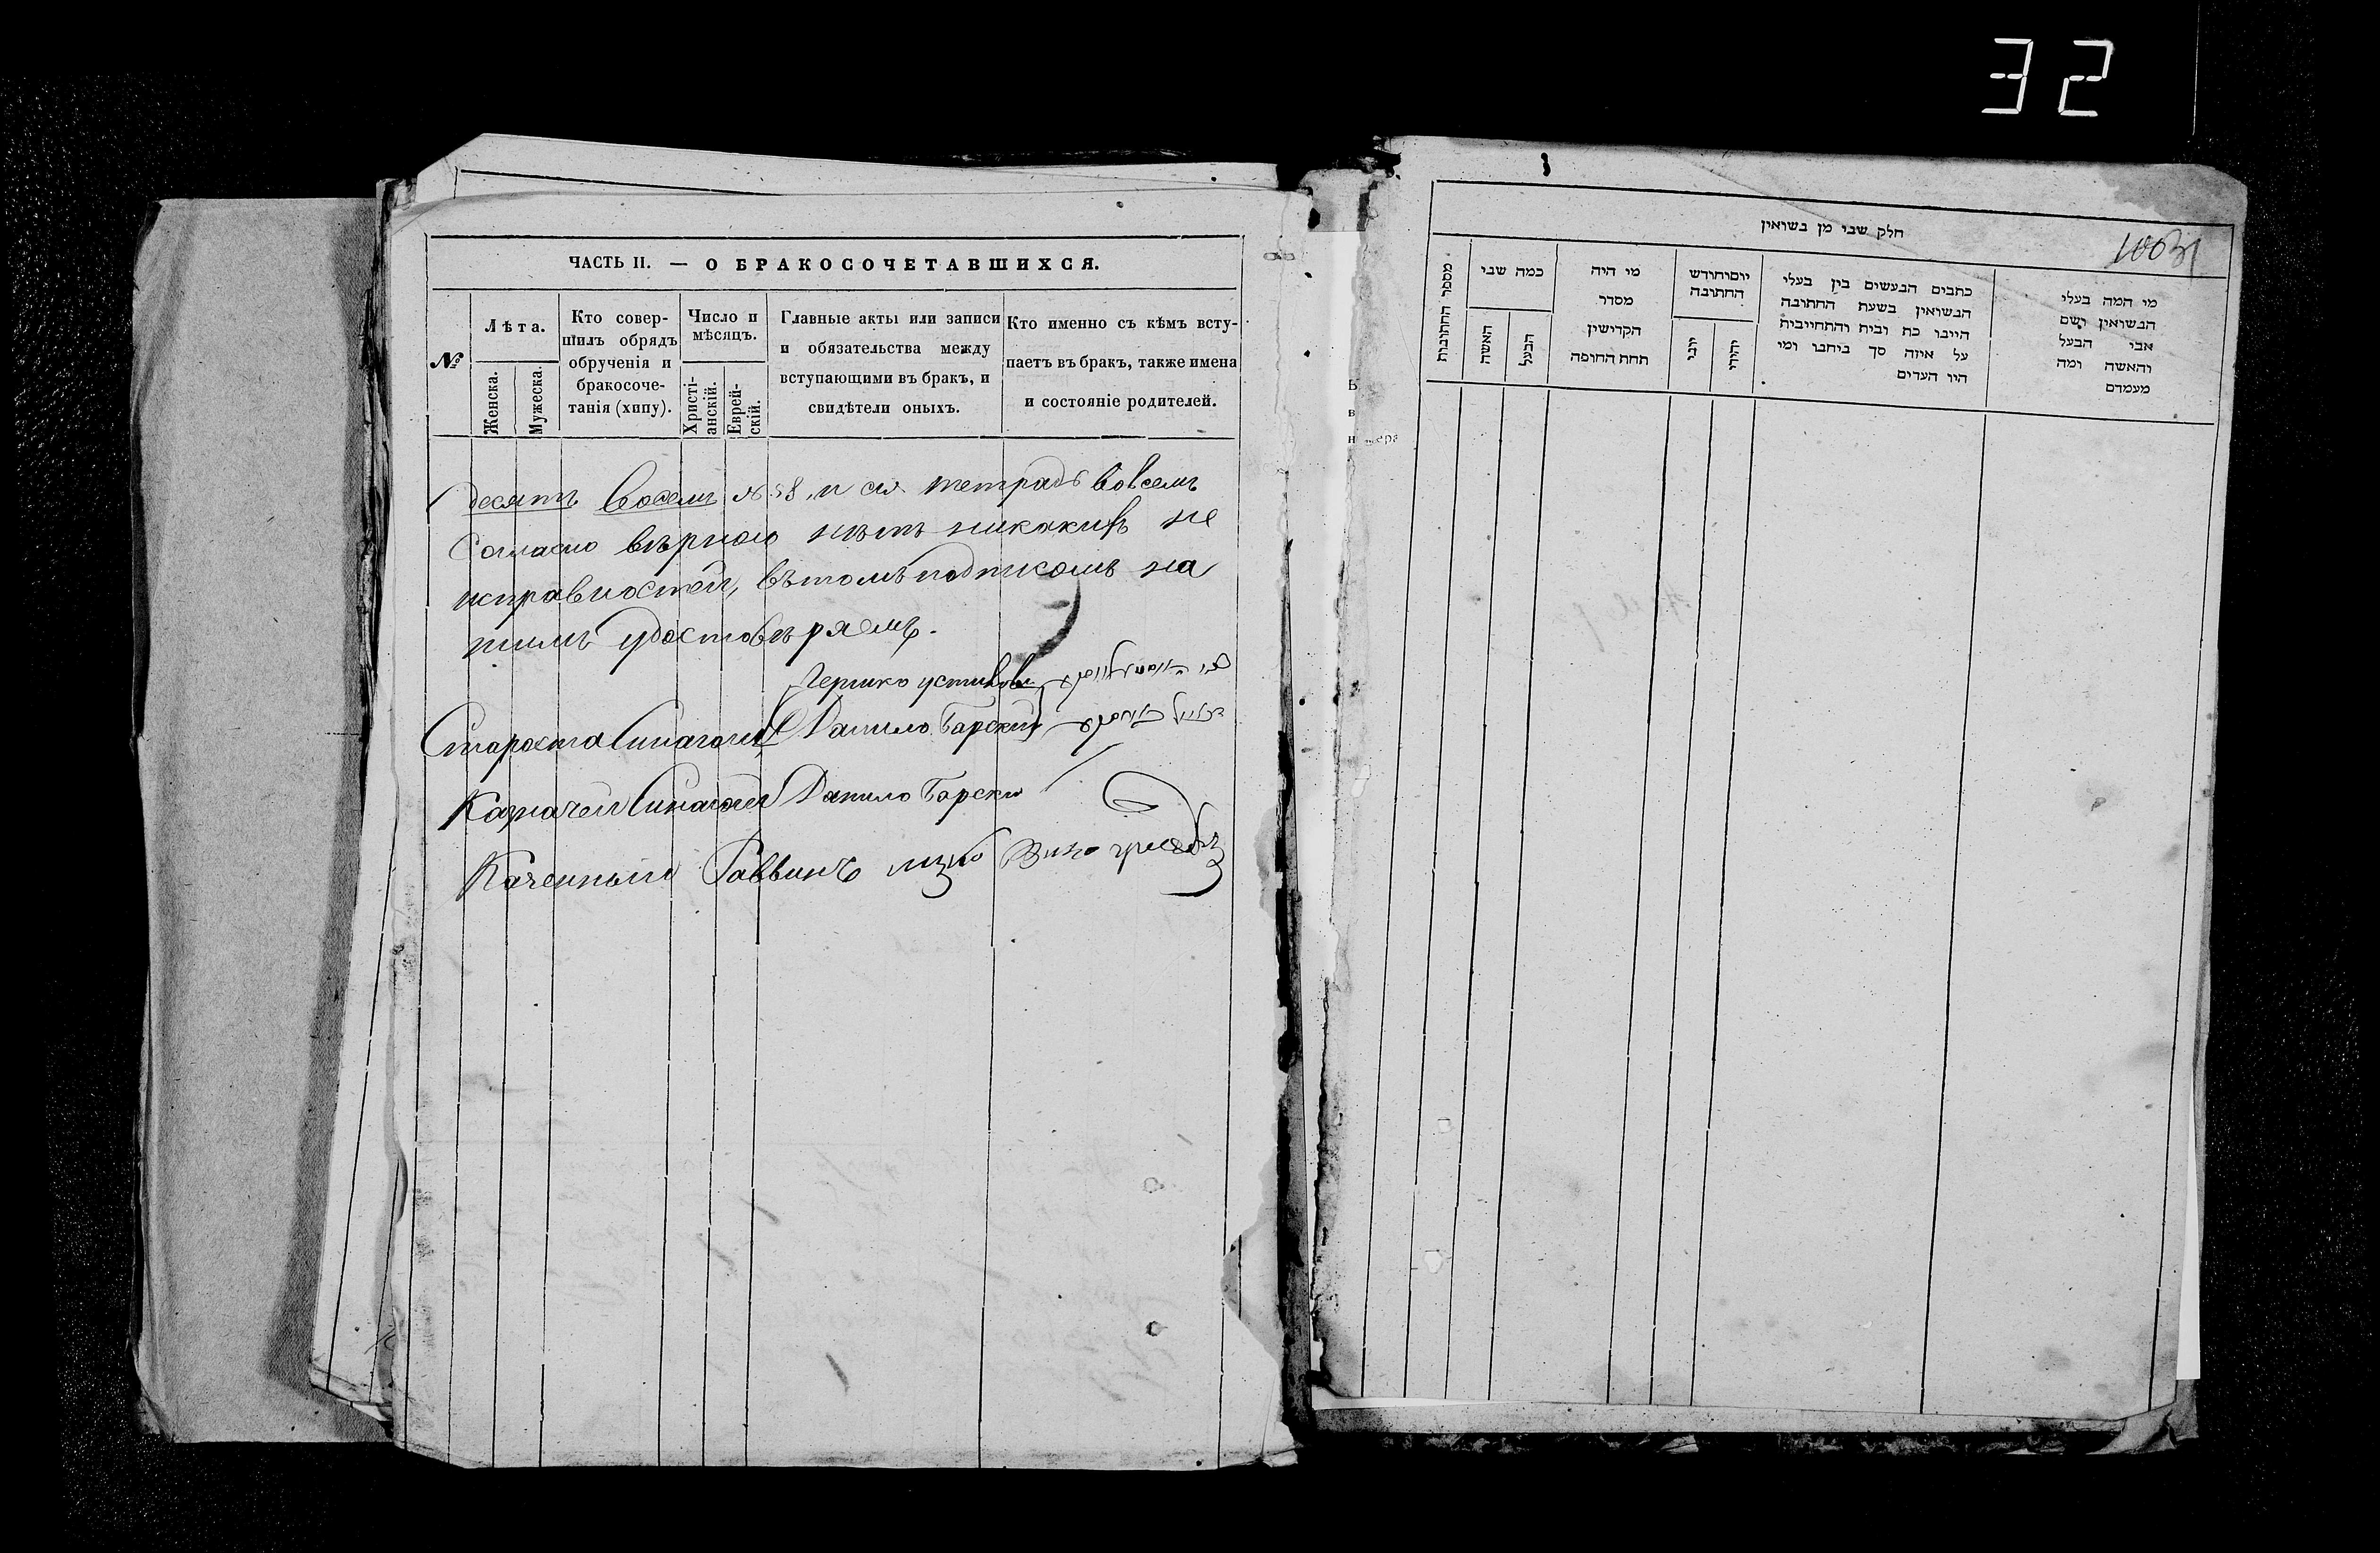 32
ЧАСТЬ II. — О БРАКОСОЧЕТАВШИХСЯ.
№
Лѣта.
Женска.
Мужеска.
Кто совер-
шилъ обрядъ
обрученія и
бракосоче-
танія (хипу).
Число и
мѣсяцъ.
Христі-
анскій.
Еврей-
скій.
Главные акты или записи
и обязательства между
вступающими въ бракъ, и
свидѣтели оныхъ.
Кто именно съ кѣмъ всту-
паетъ въ бракъ, также имена
и состояніе родителей.
десять восемь № 58, и сія тетрадь во всемъ
Согласно вѣрною нѣтъ никакихъ не
исправностей, въ томъ подписомъ на
шимъ удостовѣряемъ.
Гершко
Староста Синагоги Данило Барский
Казначей Синагоги Данило Барски
Каченный Раввинъ Виноградъ
חלק שני מן נשואין
מספר החתונות
כמה שני
האשה
הבעל
מי היה
מסדר
הקדישין
תחת החופה
יום וחודש
החתונה
יוני
יהודי
כתבים הנעשים בין בעלי
הנשואין בשעת החתונה
היינו כת ובית והתחייבות
על איזה סך ביחנו ומי
היו העדים
מי המה בעלי
הנשואין ושם
אבי הבעל
והאשה ומה
מעמדם